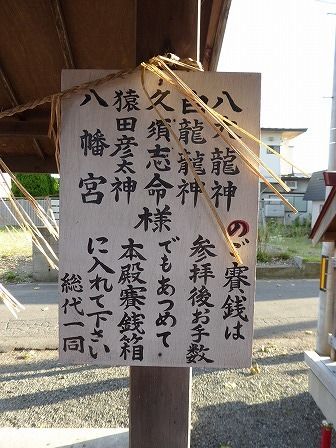 八大龍神のご賽銭は
白龍龍神 参拝後お手数
久須志命様でもあつめて
猿田彦太神 本殿賽銭箱
八幡宮 に入れて下さい
総代一同